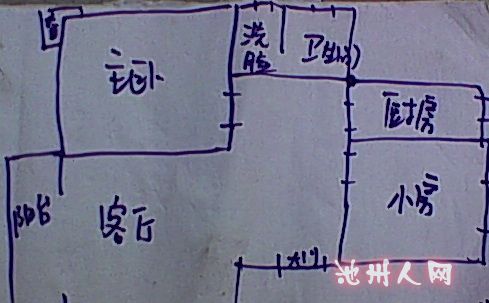 主卧
洗
脸
卫生间
厨房
阳台
客厅
小房
大门
池州人网